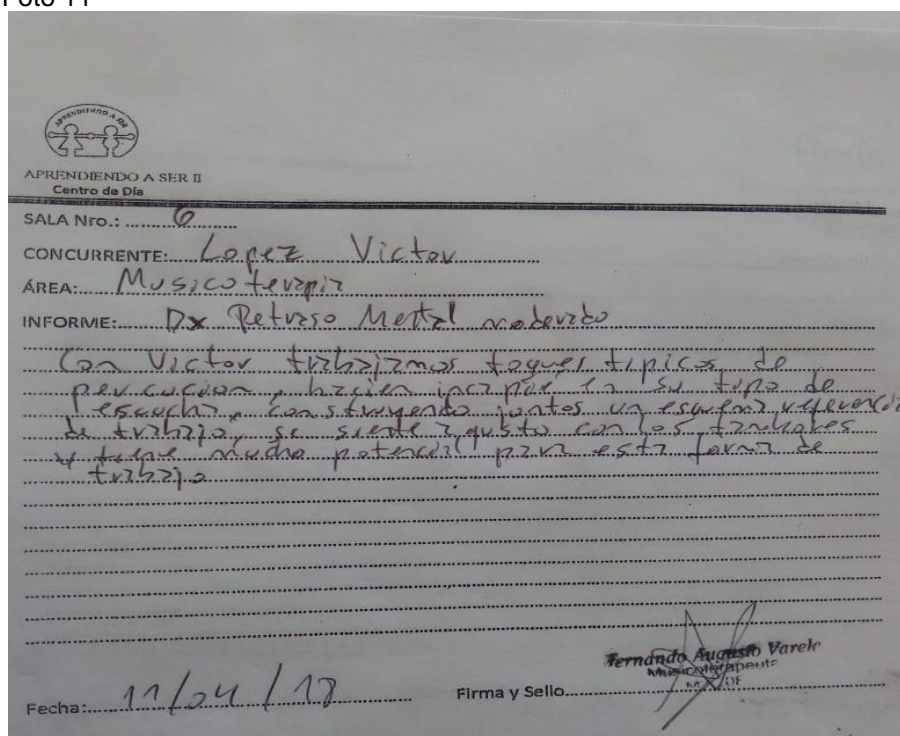 Foto 11
APRENDIENDO A SER
APRENDIENDO A SER II
Centro de Día
SALA Nro.: 6
CONCURRENTE: Lopez Victor
ÁREA: Musicoterapia
INFORME: Dx Retraso Mental moderado
Con Victor trabajamos toques tipicos de
percucion, hacien incapie en su tipo de
escucha, construyendo juntos un esquema referencia
de trabajo, se siente a gusto con los tambores
y tiene mucho potencial para esta forma de
trabajo
Fernando Augusto Varela
Musicoterapeuta
Fecha: 11/04/18 Firma y Sello